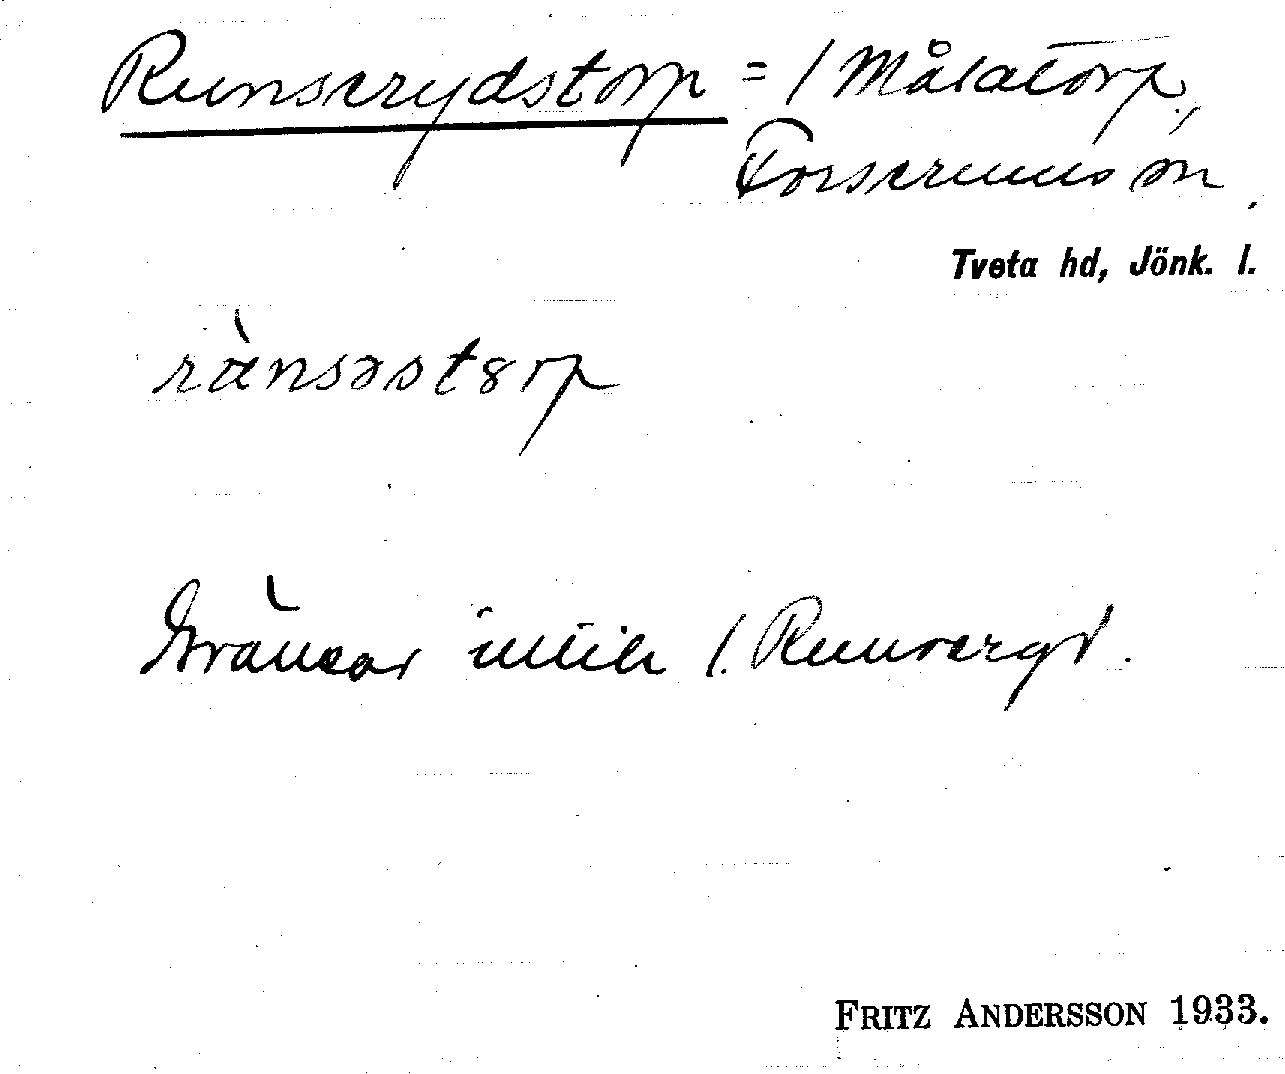 Runserydstorp = / Målatorp,
Forserums sn.
Tveta hd, Jönk. l.
rànsəstərp
Gränsar intill /. Runseryd.
FRITZ ANDERSSON 1933.